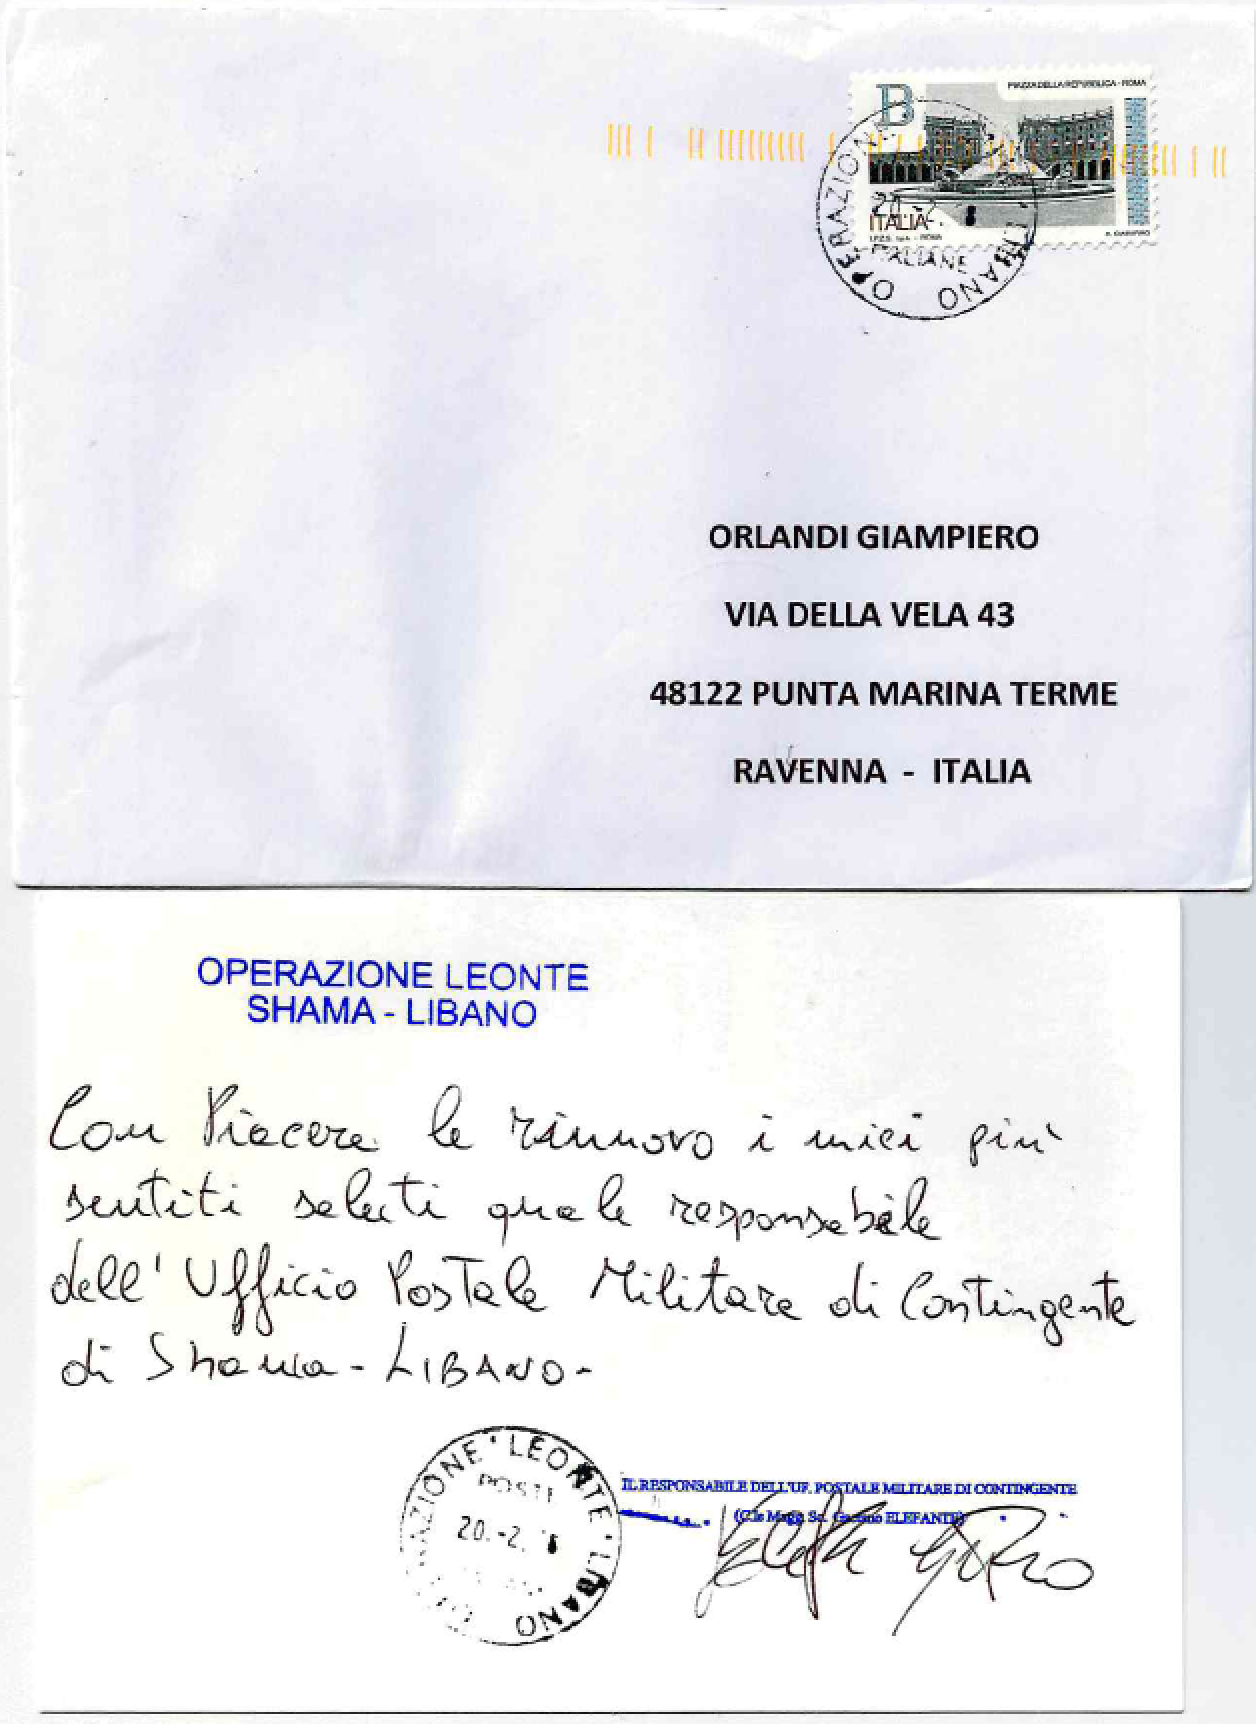 PIAZZA DELLA REPUBBLICA - ROMA
B
ITALIA
I.P.Z.S. S.p.A. - ROMA
OPERAZION LIBANO
20.-2.
ITALIANE
ORLANDI GIAMPIERO
VIA DELLA VELA 43
48122 PUNTA MARINA TERME
RAVENNA - ITALIA
OPERAZIONE LEONTE
SHAMA - LIBANO
Con Piacere le rinnovo i miei più
sentiti saluti quale responsabile
dell'Ufficio Postale Militare di Contingente
di Shama - LIBANO -
AZIONE * LEONTE * LIBANO
POSTE
20.-2.
IL RESPONSABILE DELL'UF. POSTALE MILITARE DI CONTINGENTE
(C.le Magg. Sc. ELEFANTE)